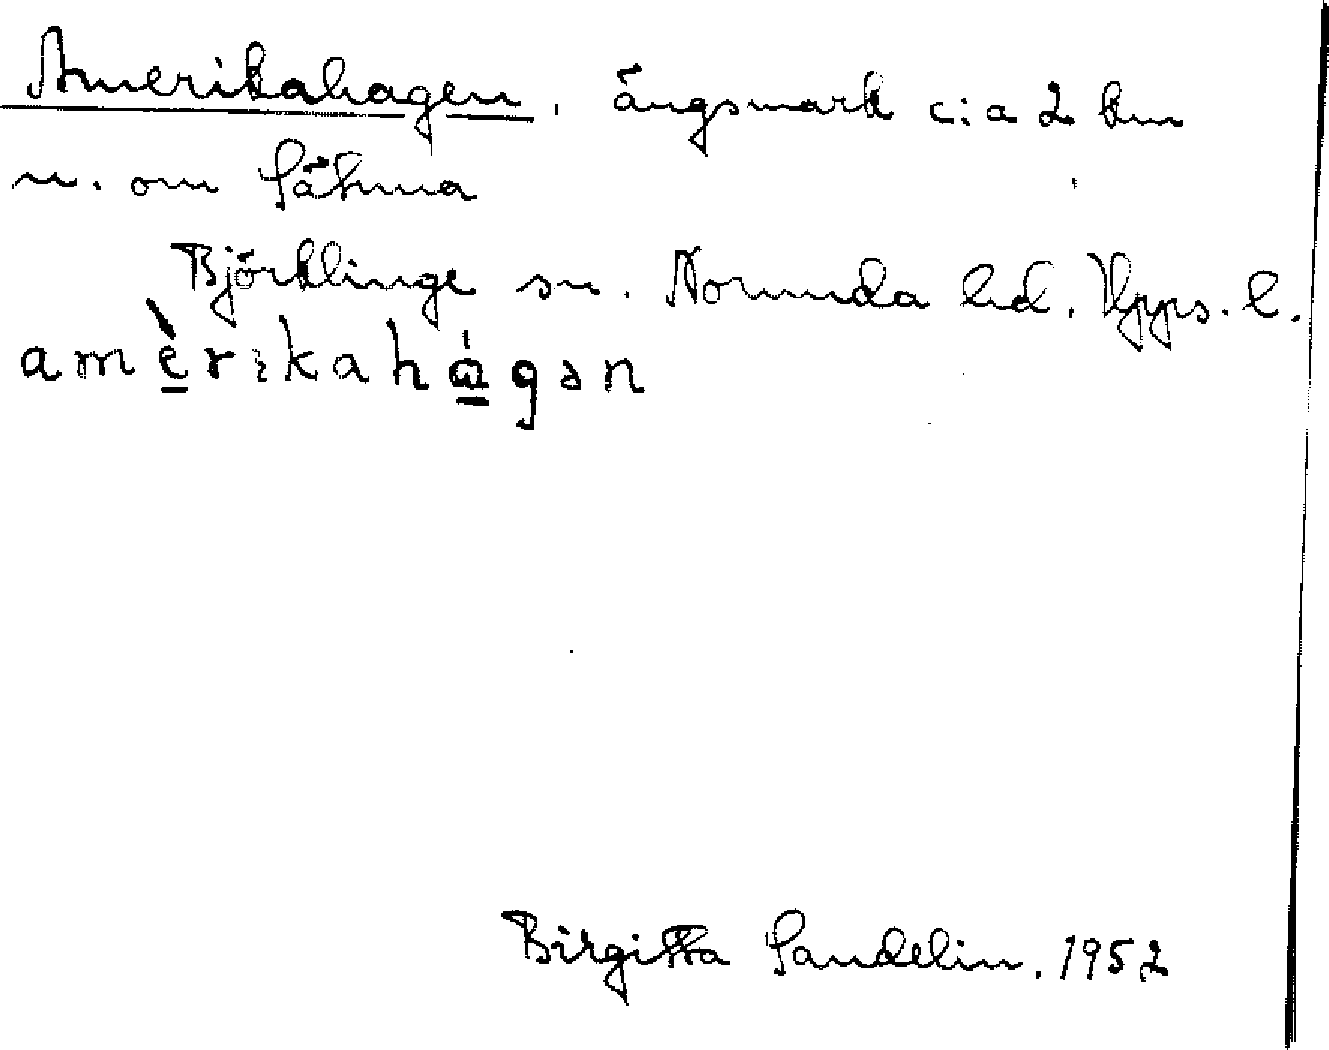 Amerikahagen. ängsmark c:a 2 km
n. om Sätuna
Björklinge sn. Norunda hd. Upps. l.
amèrikahágən
Birgitta Sandelin. 1952